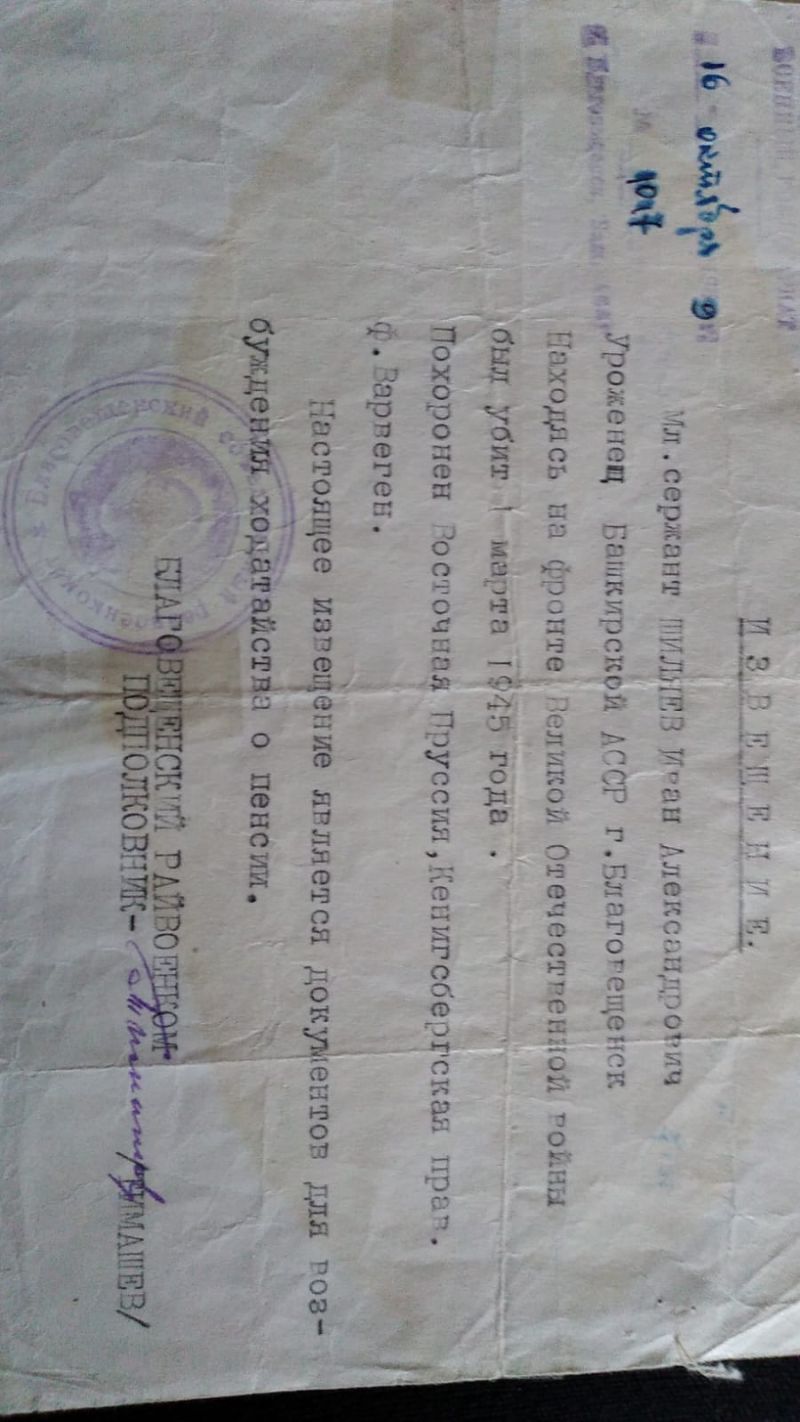 16 октября
№ 1047
ИЗВЕЩЕНИЕ.
Мл.сержант Иван Александрович
Уроженец Башкирской АССР г.Благовещенск
Находясь на фронте Великой Отечественной войны
был убит 1 марта 1945 года .
Похоронен Восточная Пруссия,Кенигсбергская прав.
ф.Варвеген.
Настоящее извещение является документов для воз-
буждения ходатайства о пенсии.
БЛАГОВЕЩЕНСКИЙ РАЙВОЕНКОМ
ПОДПОЛКОВНИК-
/ТИМАШЕВ/
Благовещенский